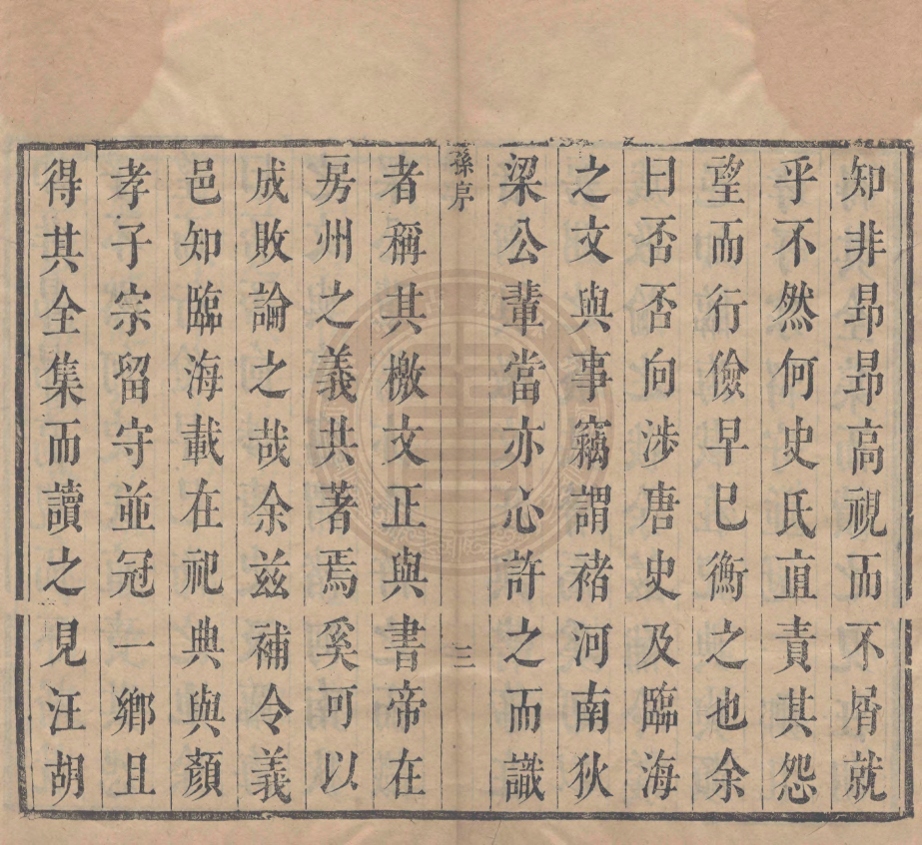 知非昂昂高視而不屑就
乎不然何史氏直責其怨
望而行儉早巳衡之也余
曰否否向涉唐史及臨海
之文與事竊謂褚河南狄
梁公輩當亦心許之而識
孫序
三
者稱其檄文正與書帝在
房州之義共著焉奚可以
成敗論之哉余兹補令義
邑知臨海載在祀典與顏
孝子宗留守並冠一鄉且
得其全集而讀之見汪胡